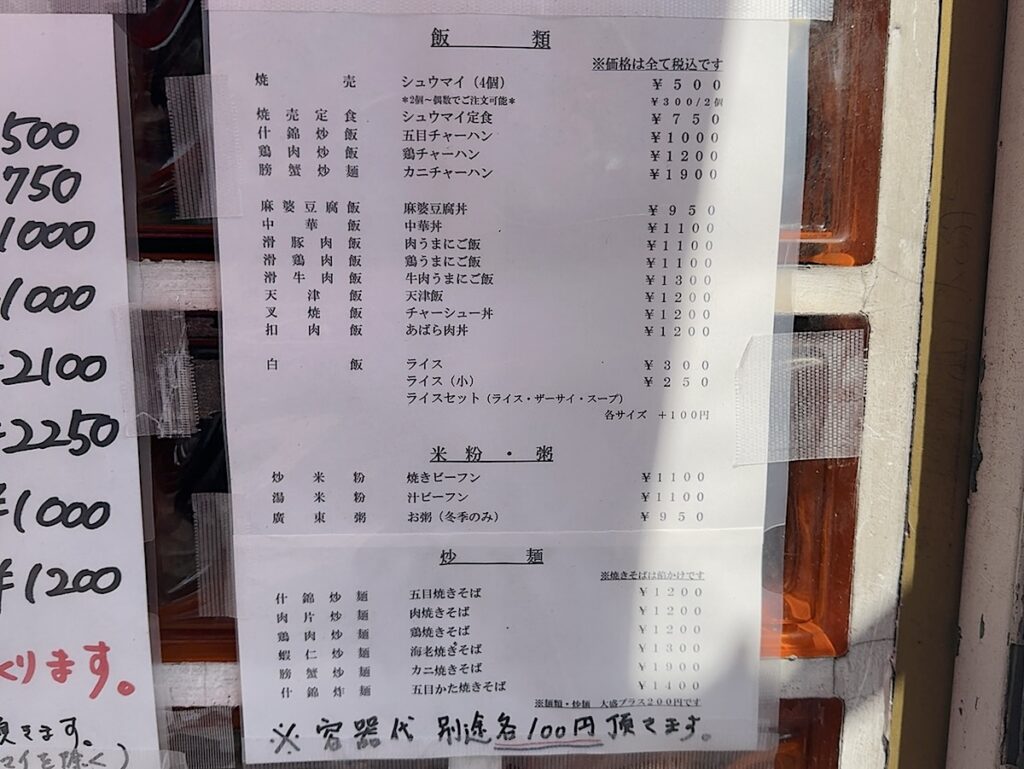 500
750
1000
1000
2100
2250
¥1000
¥1200
くります。
飯 類
※価格は全て税込です
焼売 シュウマイ（4個） ¥500
*2個～偶数でご注文可能* ¥300/2個
焼売定食 シュウマイ定食 ¥750
什錦炒飯 五目チャーハン ¥1000
鶏肉炒飯 鶏チャーハン ¥1200
膀蟹炒麺 カニチャーハン ¥1900
麻婆豆腐飯 麻婆豆腐丼 ¥950
中華飯 中華丼 ¥1100
滑豚肉飯 肉うまにご飯 ¥1100
滑鶏肉飯 鶏うまにご飯 ¥1100
滑牛肉飯 牛肉うまにご飯 ¥1300
天津飯 天津飯 ¥1200
叉焼飯 チャーシュー丼 ¥1200
扣肉飯 あばら肉丼 ¥1200
白飯 ライス ¥300
ライス（小） ¥250
ライスセット（ライス・ザーサイ・スープ）
各サイズ +100円
米 粉 ・ 粥
炒米粉 焼きビーフン ¥1100
湯米粉 汁ビーフン ¥1100
廣東粥 お粥（冬季のみ） ¥950
炒 麺
※焼きそばは餡かけです
什錦炒麺 五目焼きそば ¥1200
肉片炒麺 肉焼きそば ¥1200
鶏肉炒麺 鶏焼きそば ¥1200
蝦仁炒麺 海老焼きそば ¥1300
膀蟹炒麺 カニ焼きそば ¥1900
什錦炸麺 五目かた焼きそば ¥1400
※麺類・炒麺 大盛プラス200円です
※ 容器代 別途各100円頂きます。